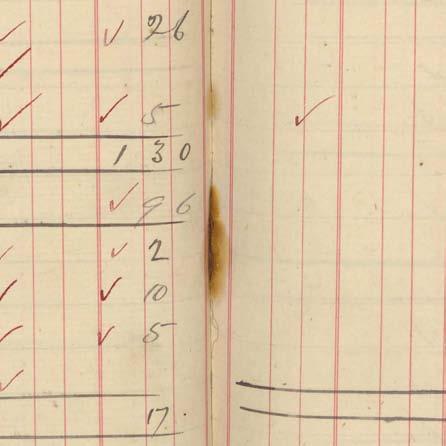 ✓ 26
✓ 5
1 30
✓ 96
✓ 2
✓ 10
✓ 5
17.